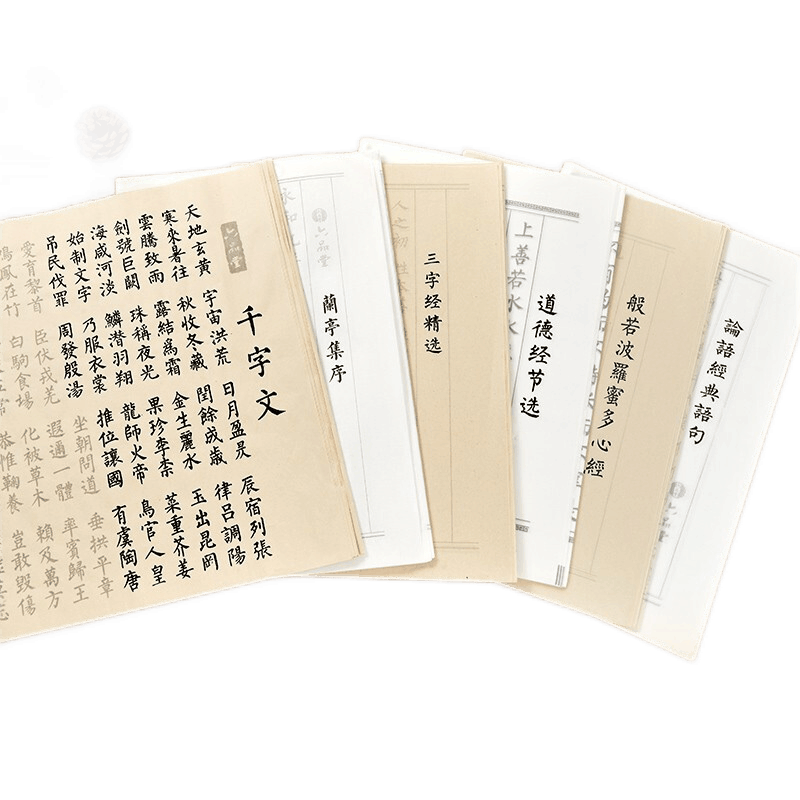 千字文
天地玄黃 宇宙洪荒 日月盈昃 辰宿列張
寒來暑往 秋收冬藏 閏餘成歲 律呂調陽
雲騰致雨 露結爲霜 金生麗水 玉出昆岡
劍號巨闕 珠稱夜光 果珍李柰 菜重芥姜
海咸河淡 鱗潜羽翔 龍師火帝 鳥官人皇
始制文字 乃服衣裳 推位讓國 有虞陶唐
吊民伐罪 周發殷湯 坐朝問道 垂拱平章
愛育黎首 臣伏戎羌 遐邇一體 率賓歸王
鳴鳳在竹 白駒食場 化被草木 賴及萬方
五常 恭惟鞠養 豈敢毀傷
六品堂
蘭亭集序
永和九
六品堂
三字经精选
人之初 性本
道德经节选
上善若水 水
般若波羅蜜多心經
論語經典語句
六品堂